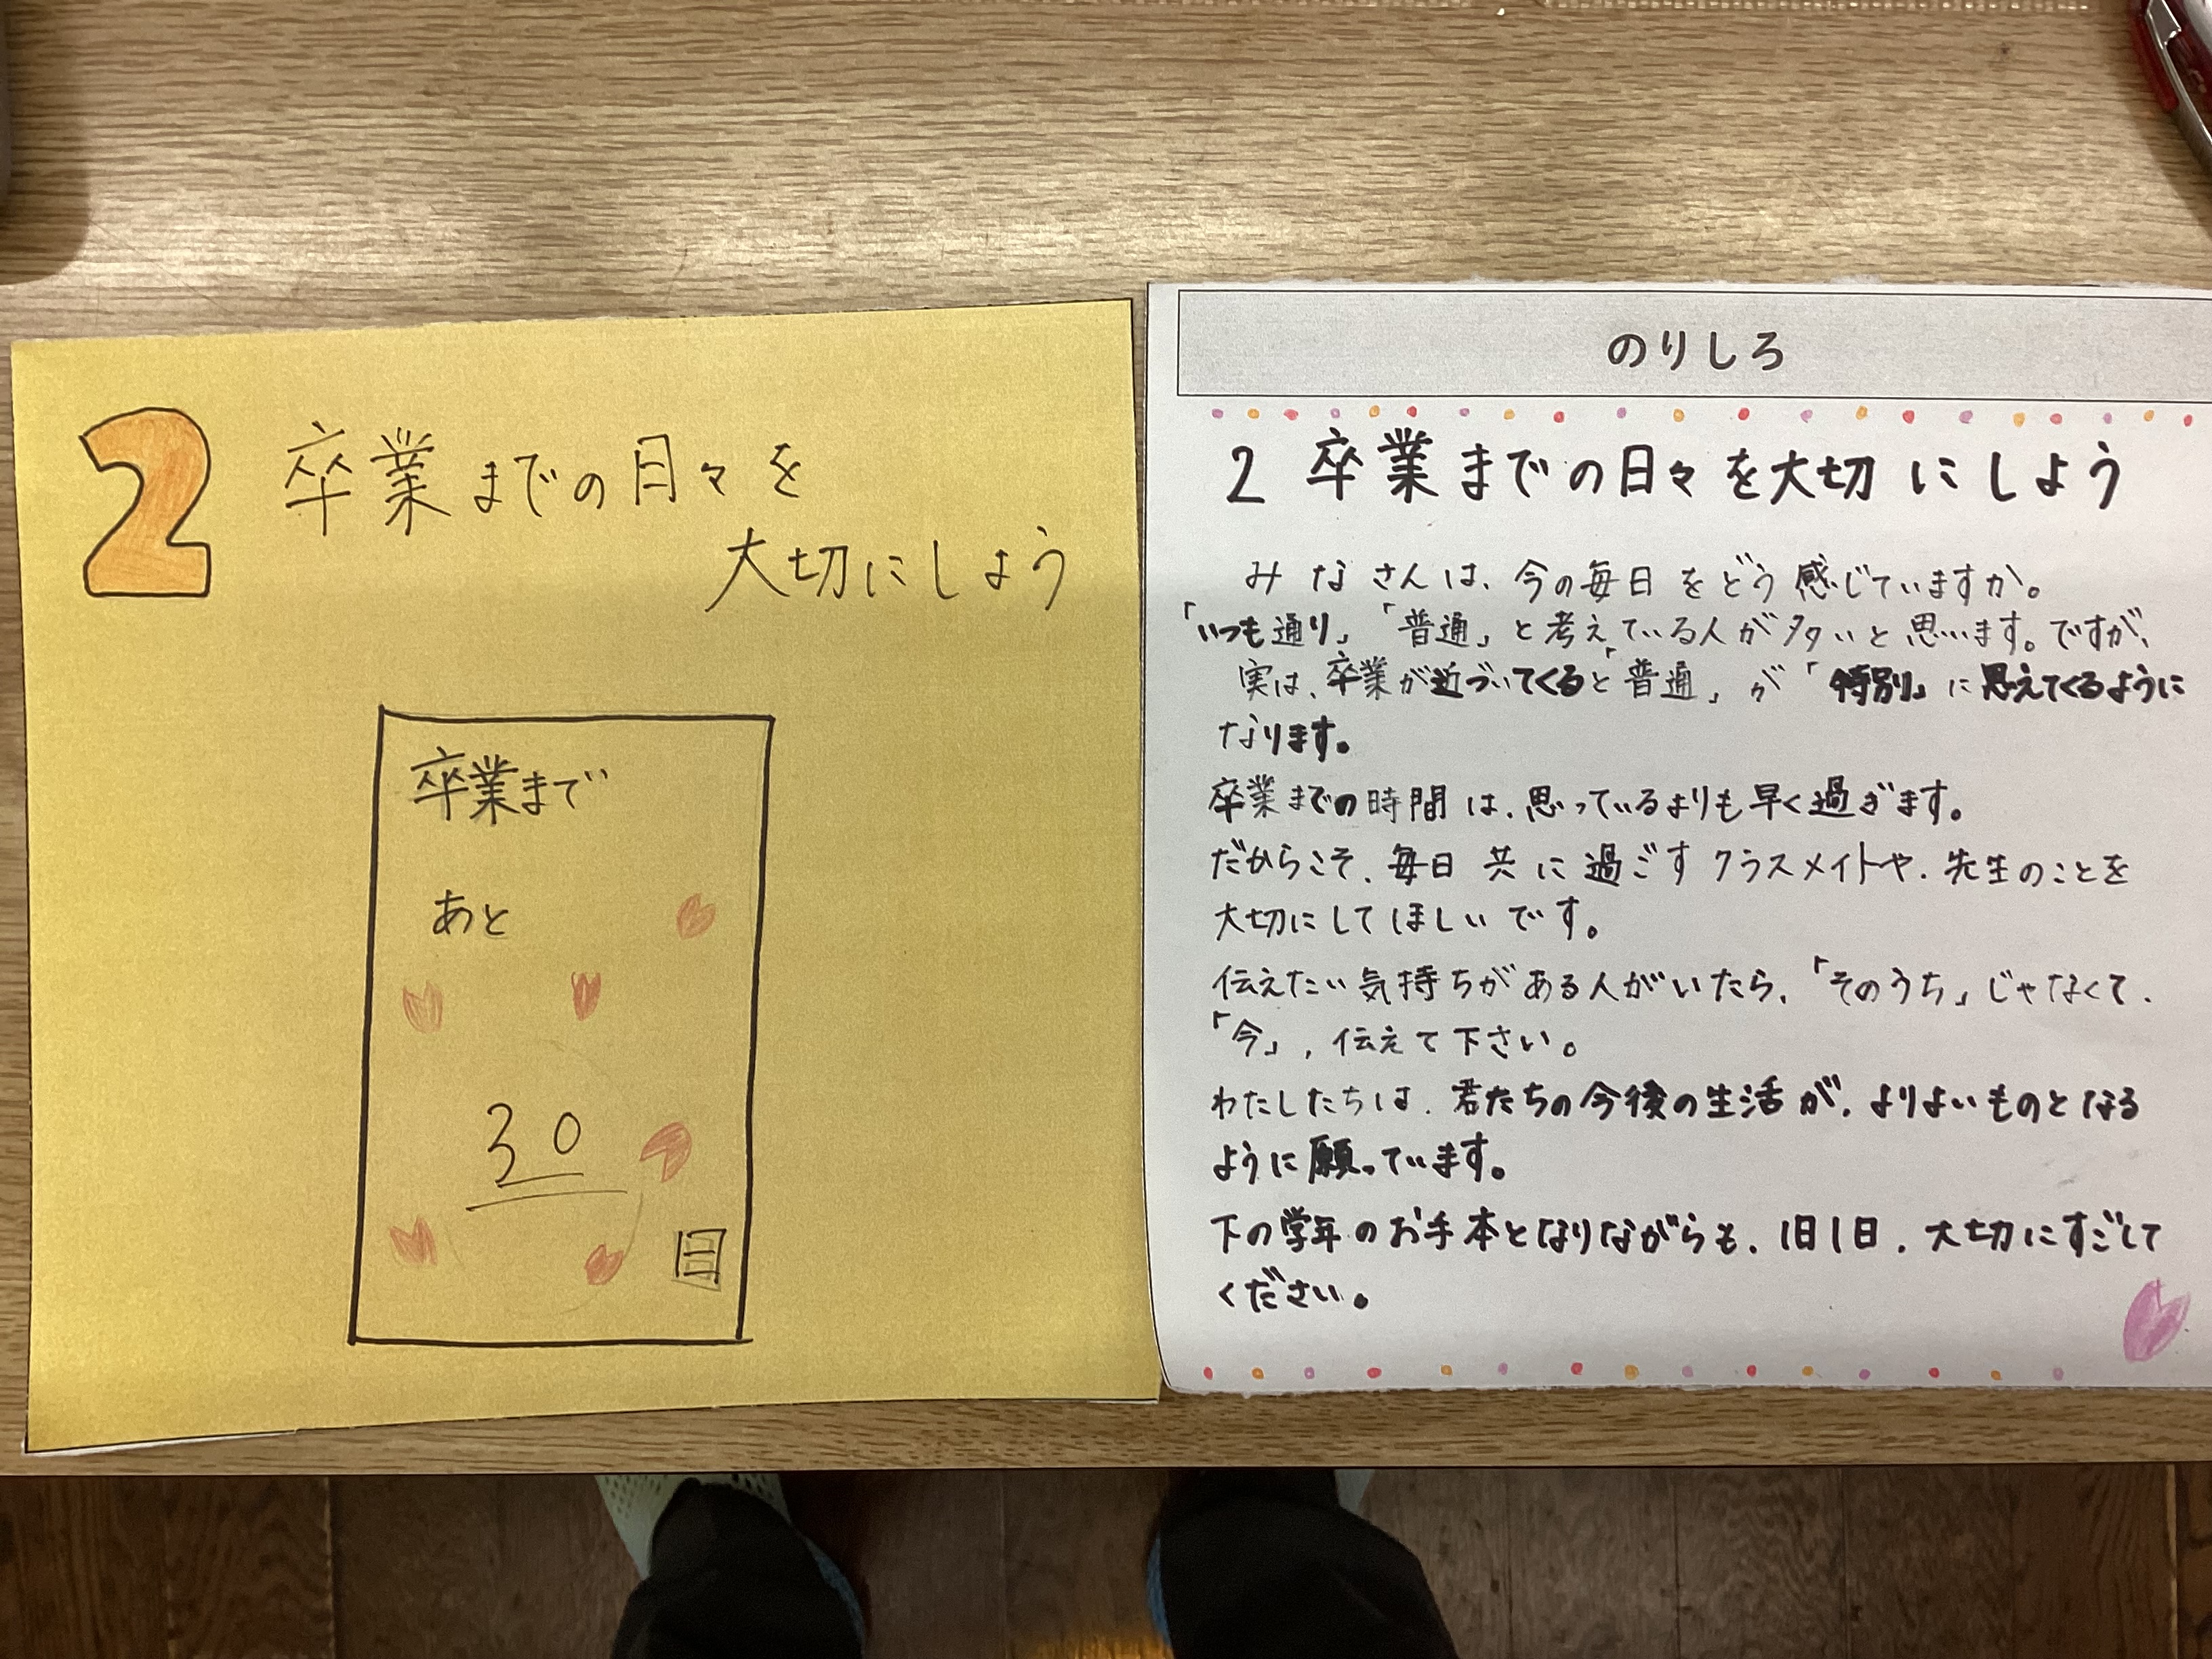 2 卒業までの日々を
大切にしよう
卒業まで
あと
30
日
のりしろ
2 卒業までの日々を大切にしよう
みなさんは、今の毎日をどう感じていますか。
「いつも通り」「普通」と考えている人が多いと思います。ですが、
実は、卒業が近づいてくると「普通」が「特別」に思えてくるように
なります。
卒業までの時間は、思っているよりも早く過ぎます。
だからこそ、毎日共に過ごすクラスメイトや、先生のことを
大切にしてほしいです。
伝えたい気持ちがある人がいたら、「そのうち」じゃなくて、
「今」、伝えて下さい。
わたしたちは、君たちの今後の生活が、よりよいものとなる
ように願っています。
下の学年のお手本となりながらも、1日1日、大切にすごして
ください。